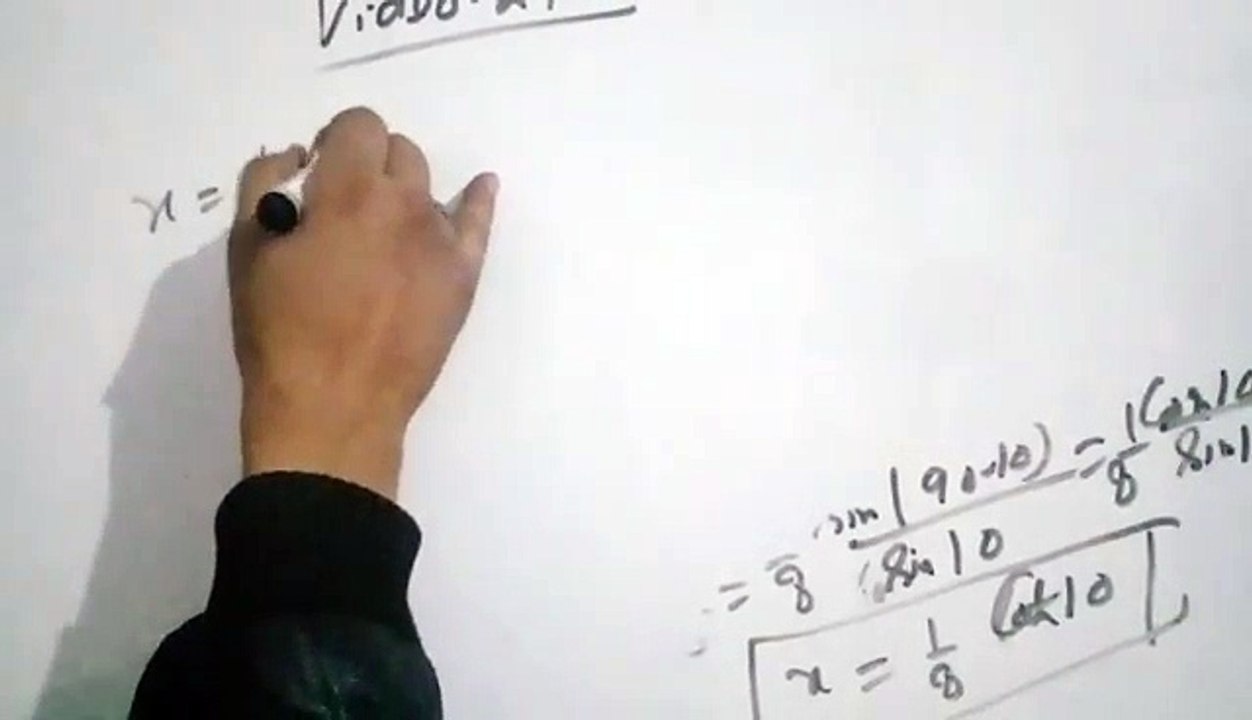 x =
= 1/8 sin(90-10)/sin10 = 1/8 Cos10/Sin1
x = 1/8 Cot10